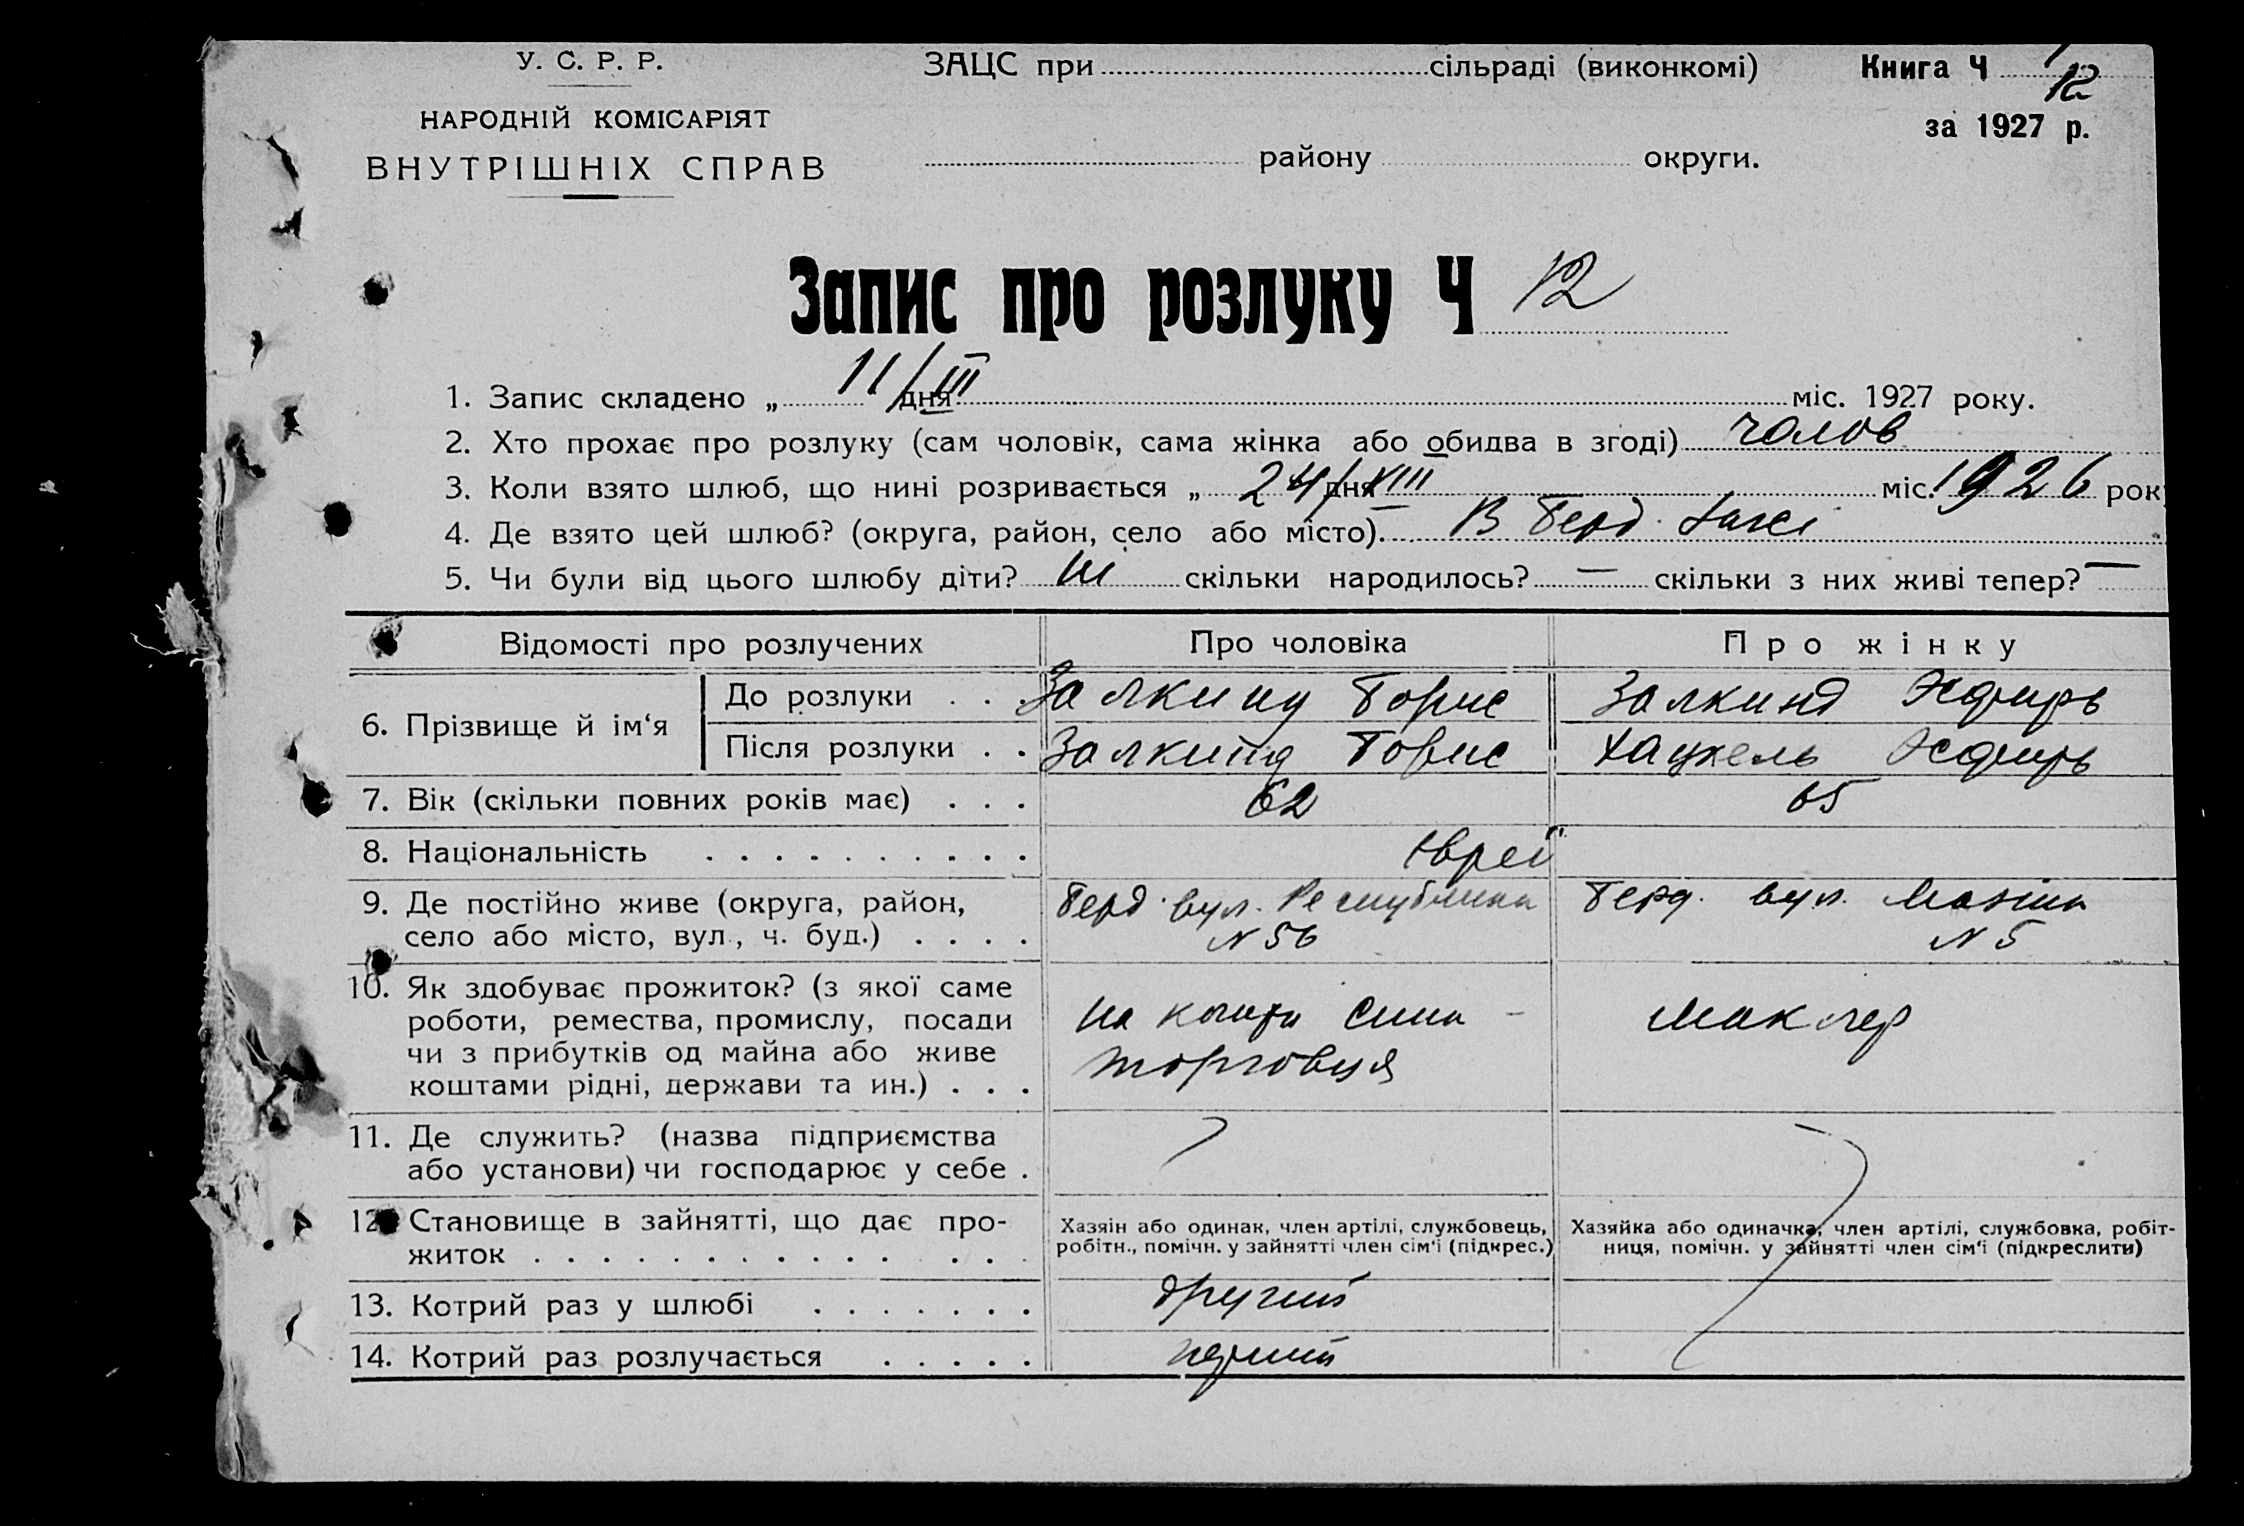 У. С. Р. Р.
НАРОДНІЙ КОМІСАРІЯТ
ВНУТРІШНІХ СПРАВ
ЗАЦС при сільраді (виконкомі)
району округи.
Книга Ч
12
за 1927 р.
Запис про розлуку Ч 12
1. Запис складено „ 11/III дня міс. 1927 року.
2. Хто прохає про розлуку (сам чоловік, сама жінка або обидва в згоді) чолов
3. Коли взято шлюб, що нині розривається „ 24/VIII дня міс. 1926 рок
4. Де взято цей шлюб? (округа, район, село або місто). В Берд. Загсі
5. Чи були від цього шлюбу діти? ні скільки народилось? — скільки з них живі тепер? —
Відомості про розлучених Про чоловіка Про жінку
6. Прізвище й ім‘я
До розлуки . . . Залкинд Борис Залкинд Эсфирь
Після розлуки . . Залкинд Борис Эсфирь
7. Вік (скільки повних років має) . . . 62 65
8. Національність . . . . . . . . . . Євреї
9. Де постійно живе (округа, район,
село або місто, вул., ч. буд.) . . . .
Берд. вул. Республики
N 56
Берд. вул.
N 5
10. Як здобуває прожиток? (з якої саме
роботи, ремества, промислу, посади
чи з прибутків од майна або живе
коштами рідні, держави та ин.) . . .
На кошти сина -
торговця
Маклер
11. Де служить? (назва підприємства
або установи) чи господарює у себе .
12. Становище в зайнятті, що дає про-
житок . . . . . . . . . . . . . . .
Хазяін або одинак, член артілі, службовець,
робітн., помічн. у зайнятті член сім‘ї (підкрес.)
Хазяйка або одиначка, член артілі, службовка, робіт-
ниця, помічн. у зайнятті член сім‘ї (підкреслити)
13. Котрий раз у шлюбі . . . . . . . другий
14. Котрий раз розлучається . . . . . перший